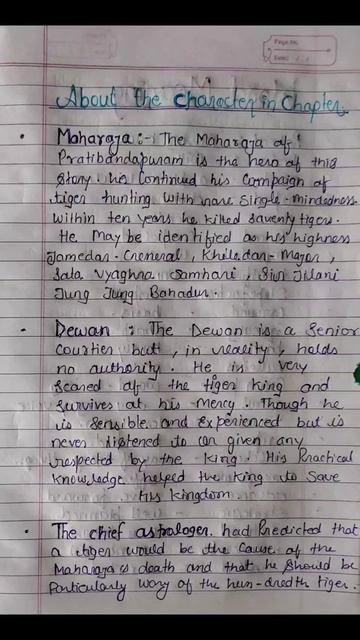 Page No.
Date:
About the character in Chapter.
Maharaja :- The Maharaja of
Pratibandapuram is the hero of this
Story. he Continued his Compaign of
tiger hunting with rare Single-mindedness
within ten years he killed saventy tigers.
He May be identified as his highness
Jamedar-General, Khiledar-Major,
Sata Vyaghra Samhari, Sir Jilani
Jung Jung Bahadur.
Dewan : The Dewan is a Senior
Courtier but, in reality, holds
no authority. He is very
Scared of the tiger king and
Survives at his Mercy. Though he
is Sensible and Experienced but is
never listened to or given any
respected by the King. His Practical
Knowledge helped the King to Save
His Kingdom
The chief astrologer. had Predicted that
a tiger would be the Cause of the
Maharaja's death and that he should be
Particularly wary of the hun-dredth tiger.